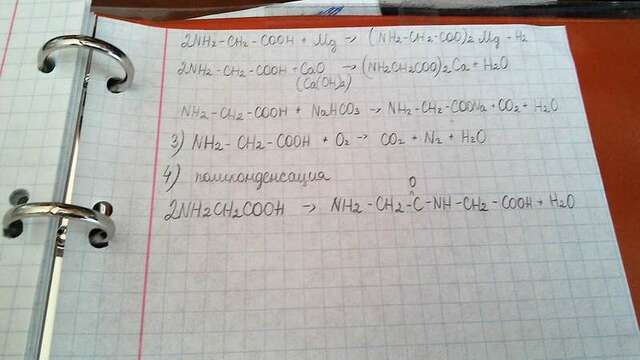 2NH2-CH2-COOH + Mg → (NH2-CH2-COO)2 Mg + H2
2NH2-CH2-COOH + CaO → (NH2CH2COO)2Ca + H2O
(Ca(OH)2)
NH2-CH2-COOH + NaHCO3 → NH2-CH2-COONa + CO2 + H2O
3) NH2-CH2-COOH + O2 → CO2 + N2 + H2O
4) поликонденсация
O
2NH2CH2COOH → NH2-CH2-C-NH-CH2-COOH + H2O